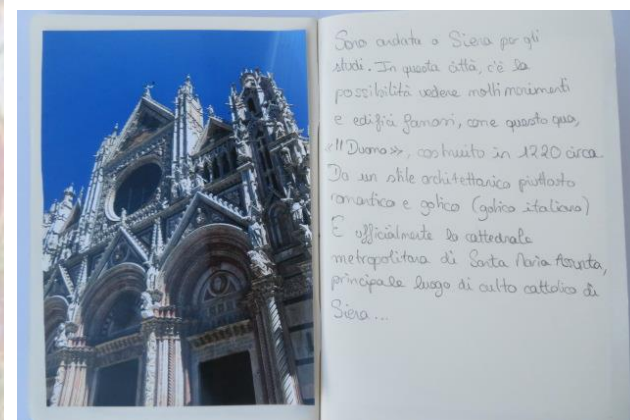 Sono andata a Siena per gli
studi. In questa città, c'è la
possibilità vedere molti monimenti
e edifici famosi, come questo qua,
«Il Duomo», costruito in 1220 circa
Da un stile architettonico piuttosto
romantico e gotico (gotico italiano)
E ufficialmente la cattedrale
metropolitana di Santa Maria Assunta,
principale luogo di culto cattolico di
Siena...